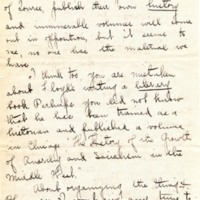 of course, publish their own history
and innumerable volumes will come
out in opposition but it seems to
me, no one has the material we
have
I think too you are mistaken
about Floyd's writing a literary
book Perhaps you did not know
that he has been trained as a
historian and published a volume
in Chicago, "The History of the Growth
of Anarchy and Socialism in the
Middle West."
About organizing the things